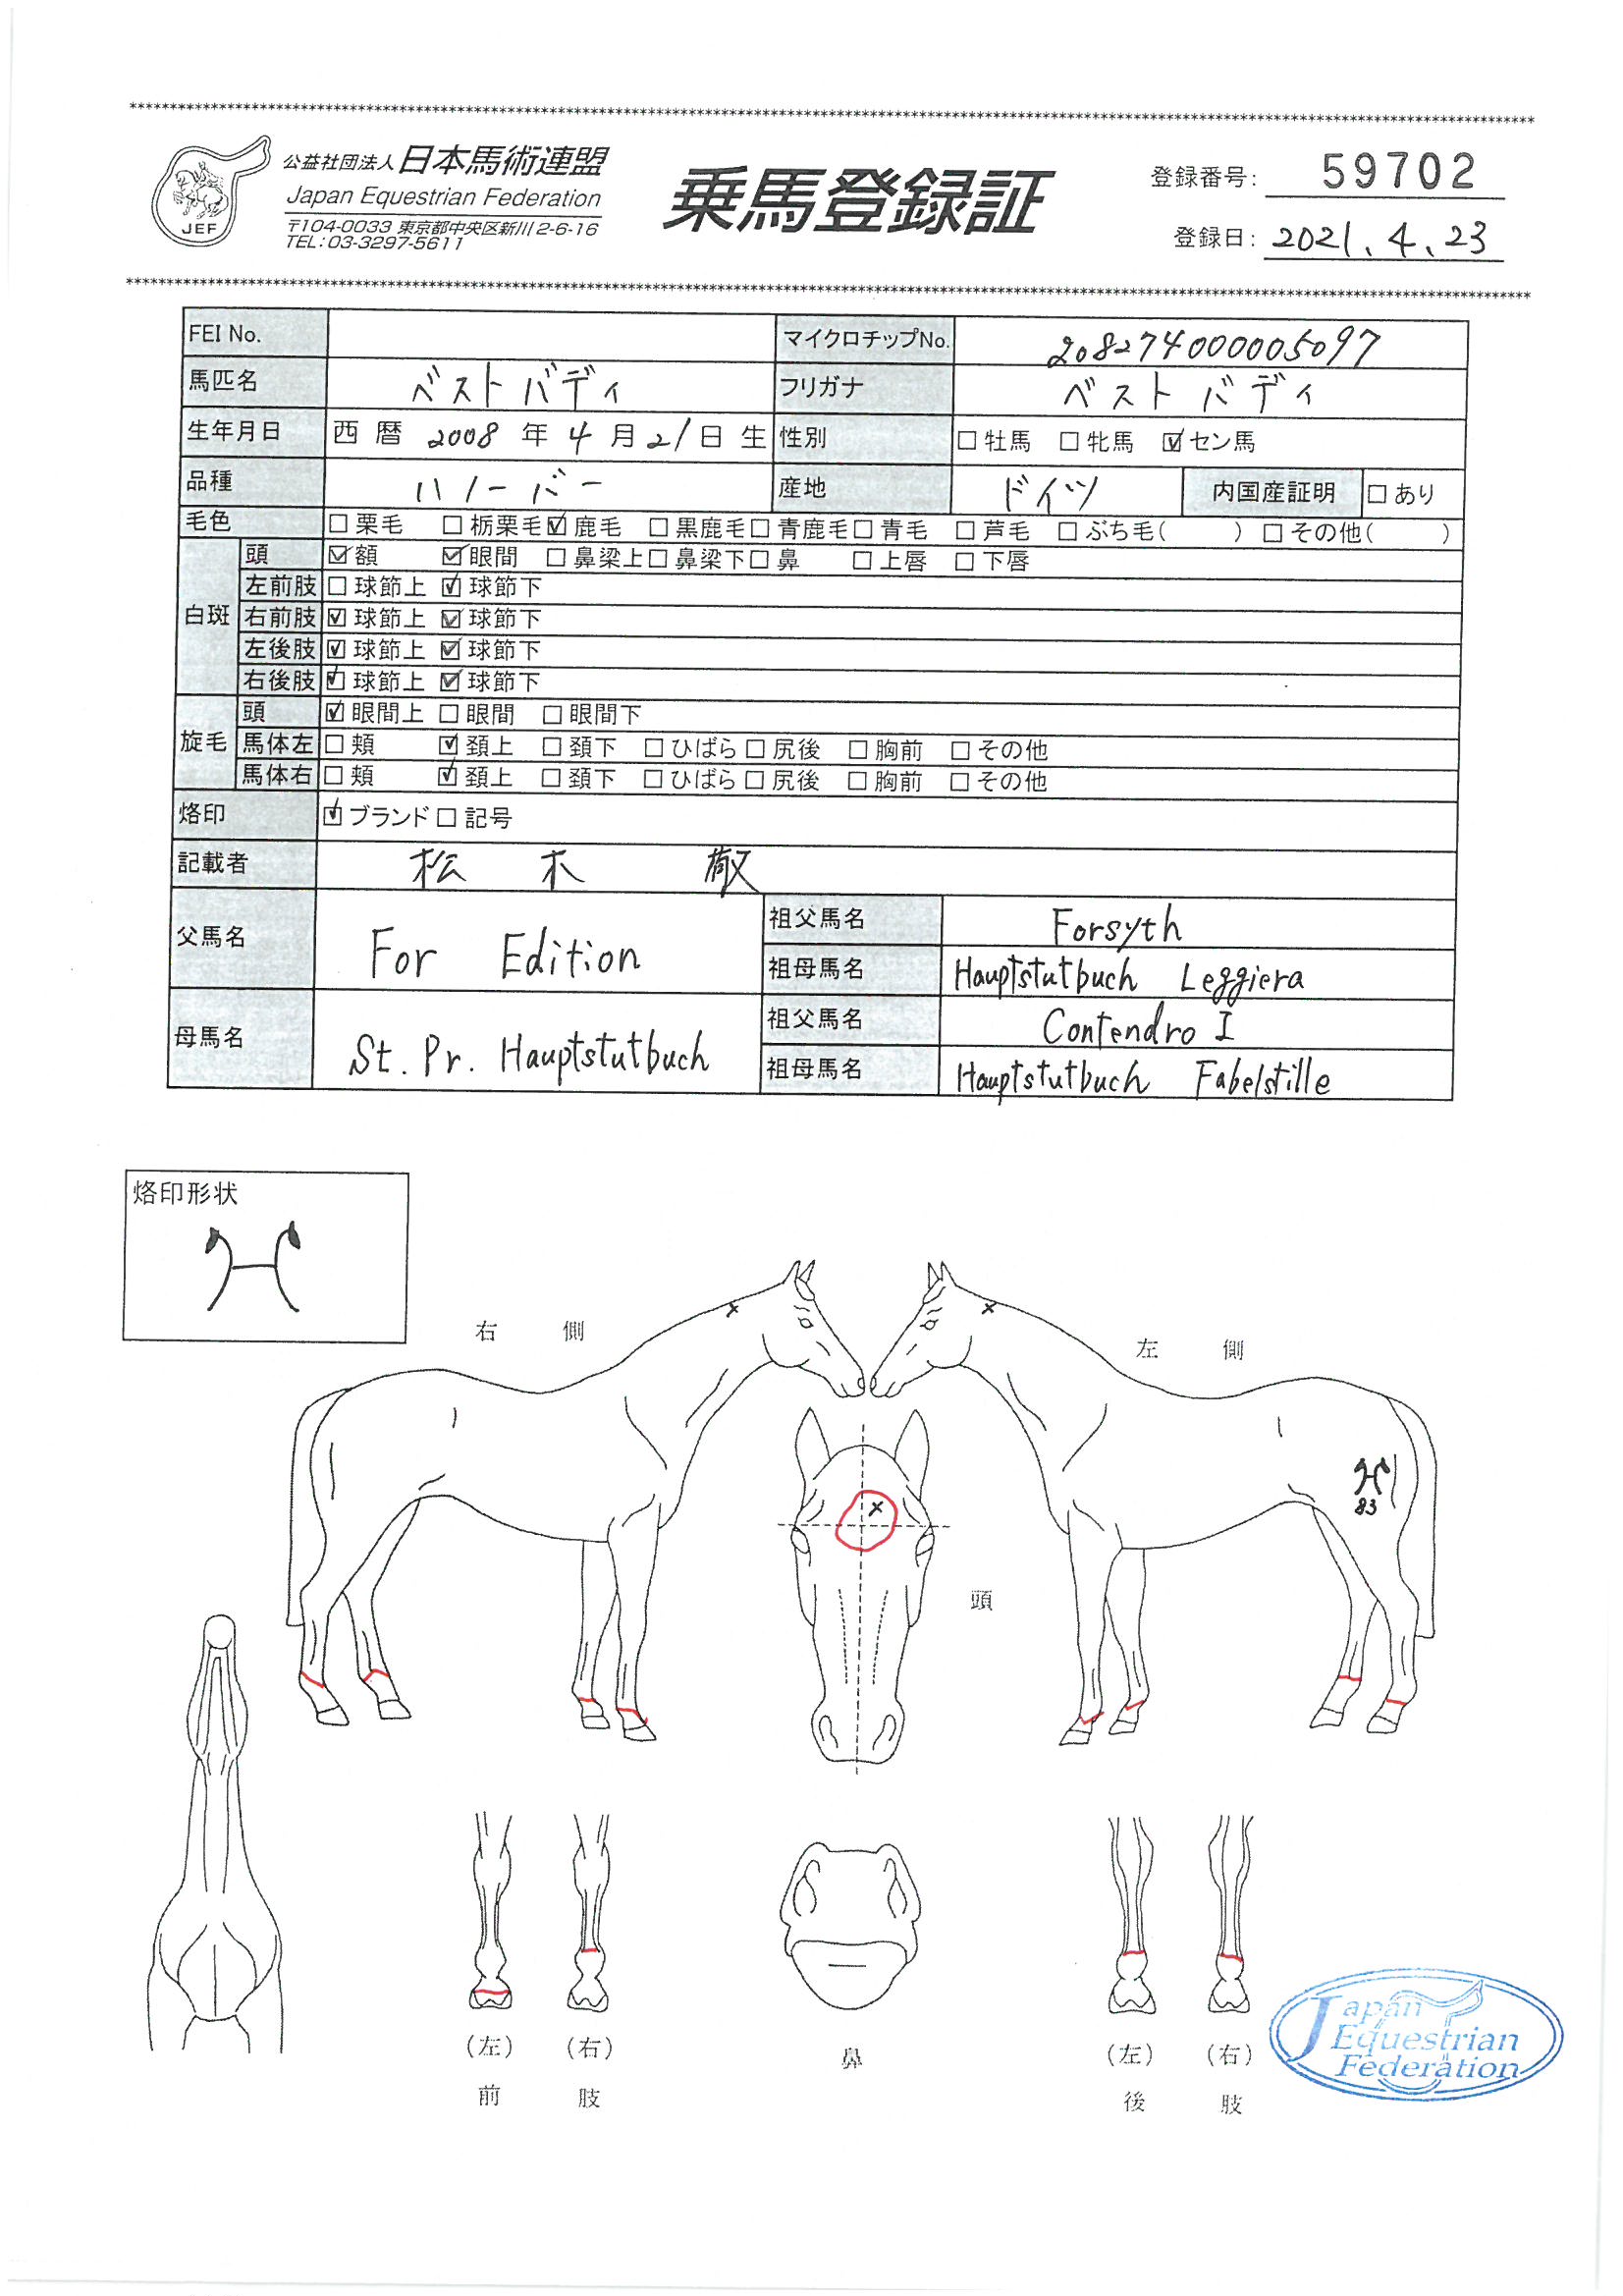 公益社団法人 日本馬術連盟
Japan Equestrian Federation
〒104-0033 東京都中央区新川2-6-16
TEL:03-3297-5611
JEF
乗馬登録証
登録番号: 59702
登録日: 2021.4.23
FEI No. マイクロチップNo. 208274000005097
馬匹名 ベストバディ フリガナ ベストバディ
生年月日 西暦 2008 年 4 月 21 日 生 性別 □牡馬 □牝馬 ☑セン馬
品種 ハノーバー 産地 ドイツ 内国産証明 □あり
毛色 □栗毛 □栃栗毛 ☑鹿毛 □黒鹿毛 □青鹿毛 □青毛 □芦毛 □ぶち毛( ) □その他( )
白斑
頭 ☑額 ☑眼間 □鼻梁上 □鼻梁下 □鼻 □上唇 □下唇
左前肢 □球節上 ☑球節下
右前肢 ☑球節上 ☑球節下
左後肢 ☑球節上 ☑球節下
右後肢 ☑球節上 ☑球節下
旋毛
頭 ☑眼間上 □眼間 □眼間下
馬体左 □頬 ☑頚上 □頚下 □ひばら □尻後 □胸前 □その他
馬体右 □頬 ☑頚上 □頚下 □ひばら □尻後 □胸前 □その他
烙印 ☑ブランド □記号
記載者 松木
父馬名 For Edition
祖父馬名 Forsyth
祖母馬名 Hauptstutbuch Leggiera
母馬名 St. Pr. Hauptstutbuch
祖父馬名 Contendro I
祖母馬名 Hauptstutbuch Fabelstille
烙印形状
右側
左側
83
頭
(左) (右)
前肢
鼻
(左) (右)
後肢
Japan
Equestrian
Federation